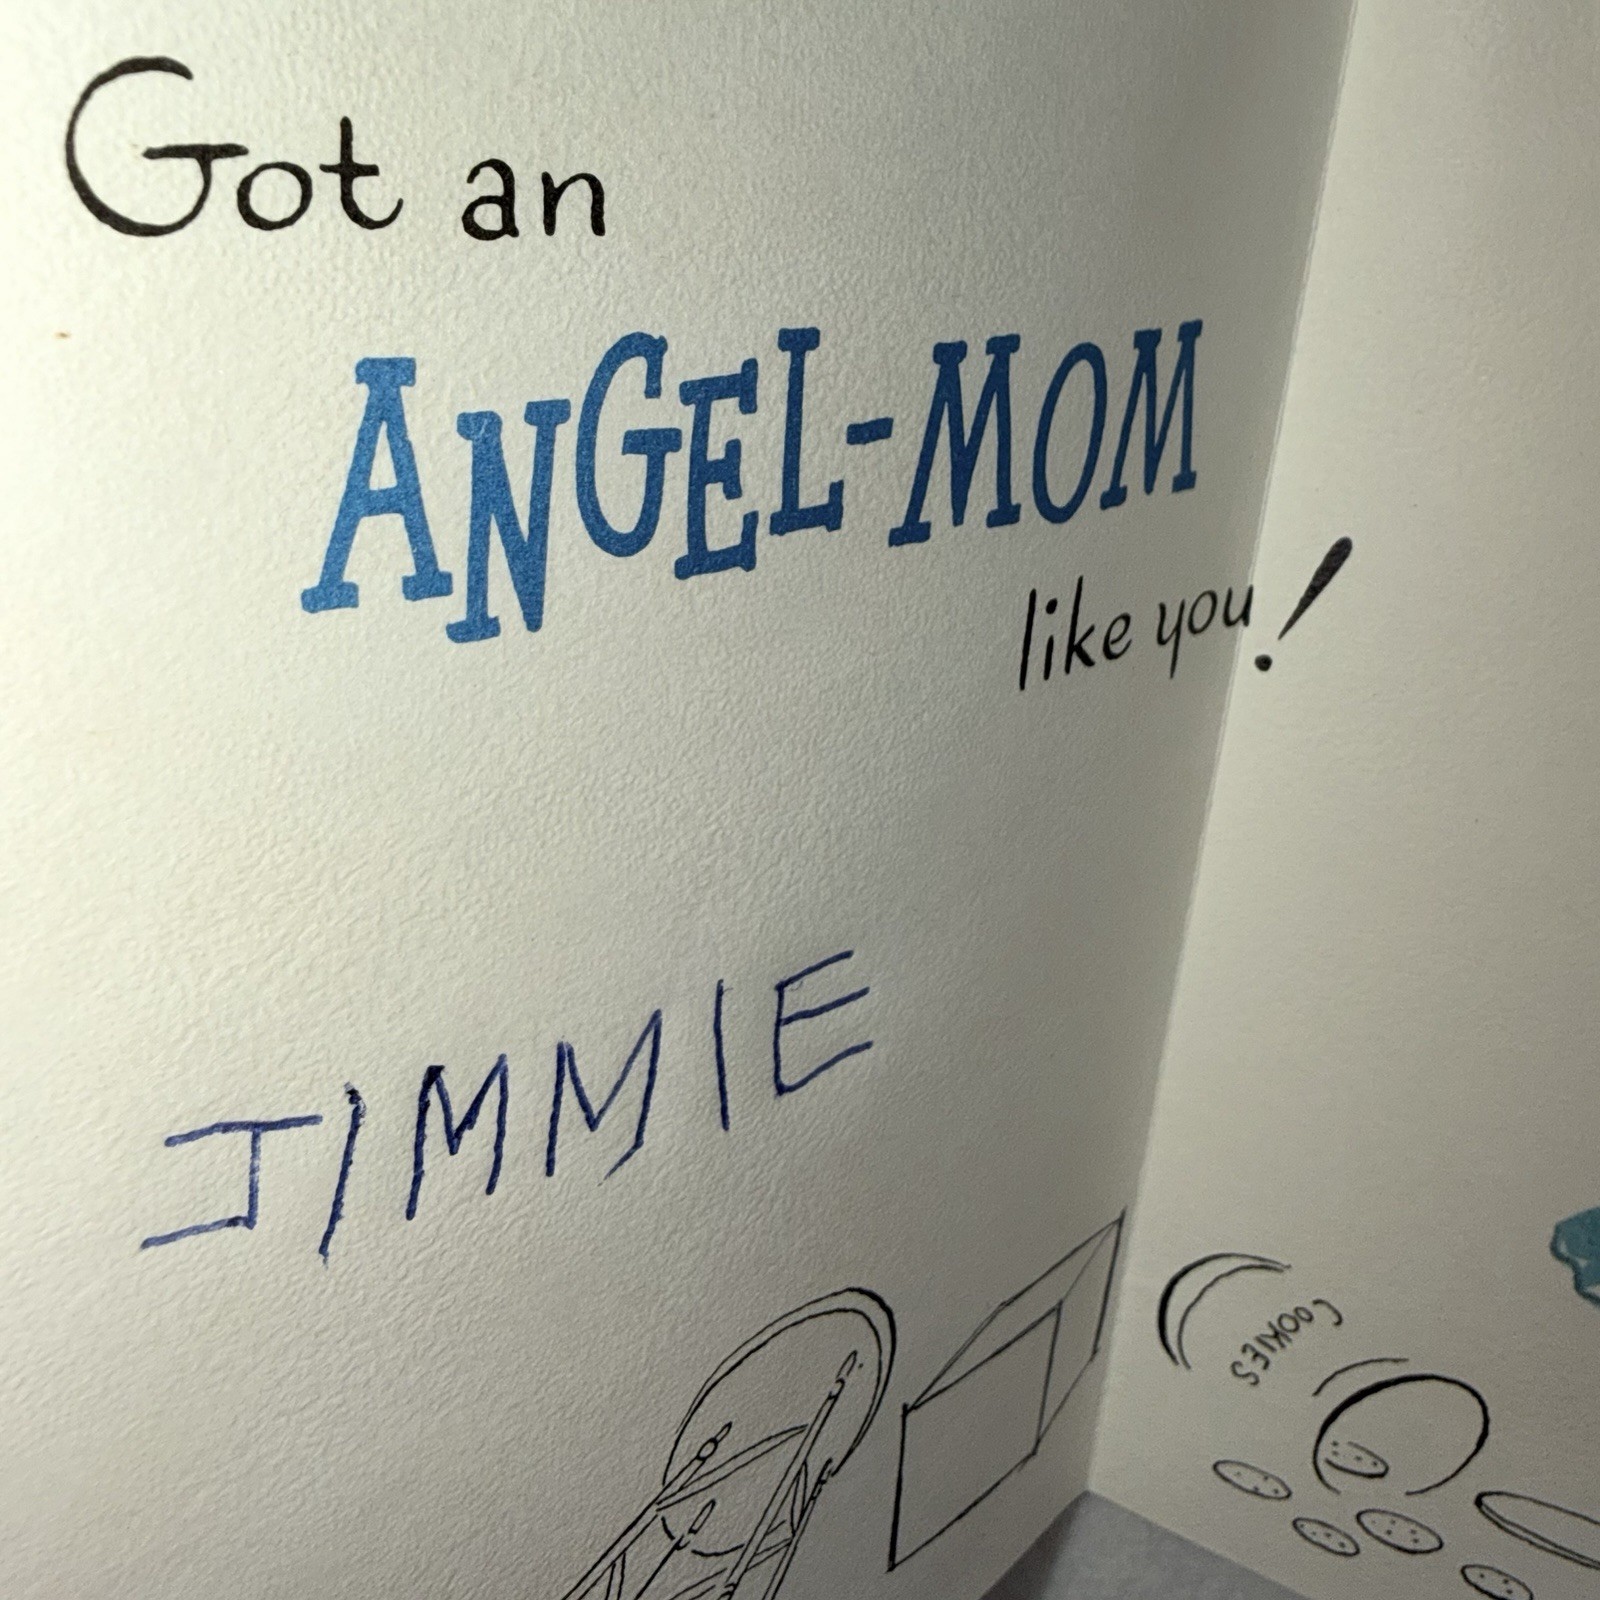 Got an
ANGEL-MOM
like you!
JIMMIE
COOKIES